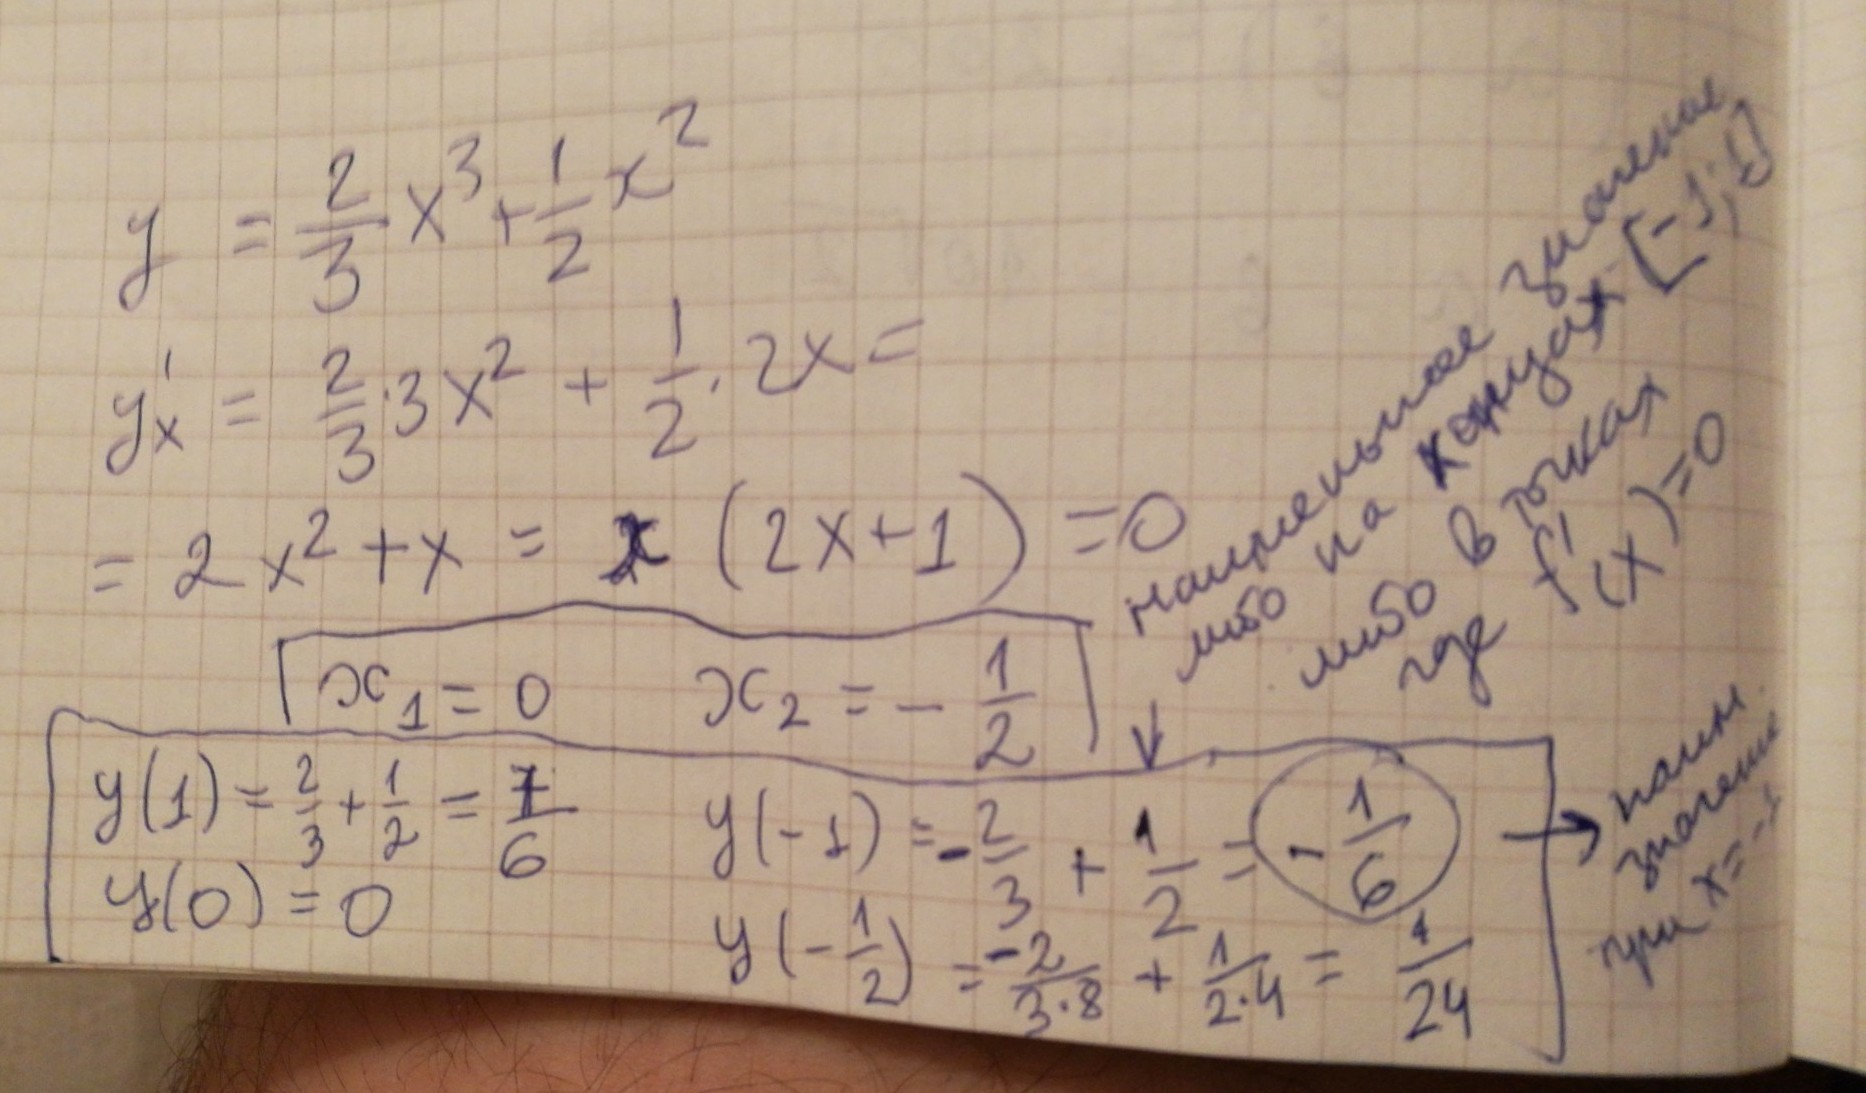 y = 2/3 x³ + 1/2 x²
y'x = 2/3 · 3x² + 1/2 · 2x =
= 2x² + x = x (2x + 1) = 0
x₁ = 0 x₂ = - 1/2
наименьшее значение
либо на концах [-1; 1]
либо в точках
где f'(x) = 0
y(1) = 2/3 + 1/2 = 7/6 y(-1) = - 2/3 + 1/2 = - 1/6
y(0) = 0 y(- 1/2) = -2/3·8 + 1/2·4 = 1/24
наим
значение
при x = -1